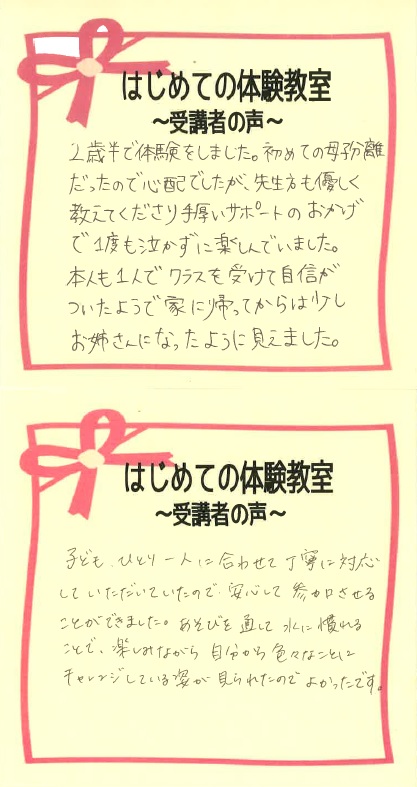 はじめての体験教室
～受講者の声～
2歳半で体験をしました。初めての母子分離
だったので心配でしたが、先生方も優しく
教えてくださり手厚いサポートのおかげ
で1度も泣かずに楽しんでいました。
本人も1人でクラスを受けて自信が
ついたようで家に帰ってからは少し
お姉さんになったように見えました。
はじめての体験教室
～受講者の声～
子ども、ひとり一人に合わせて丁寧に対応
していただいていたので、安心して参加させる
ことができました。あそびを通して水に慣れる
ことで、楽しみながら自分から色々なことに
チャレンジしている姿が見られたのでよかったです。